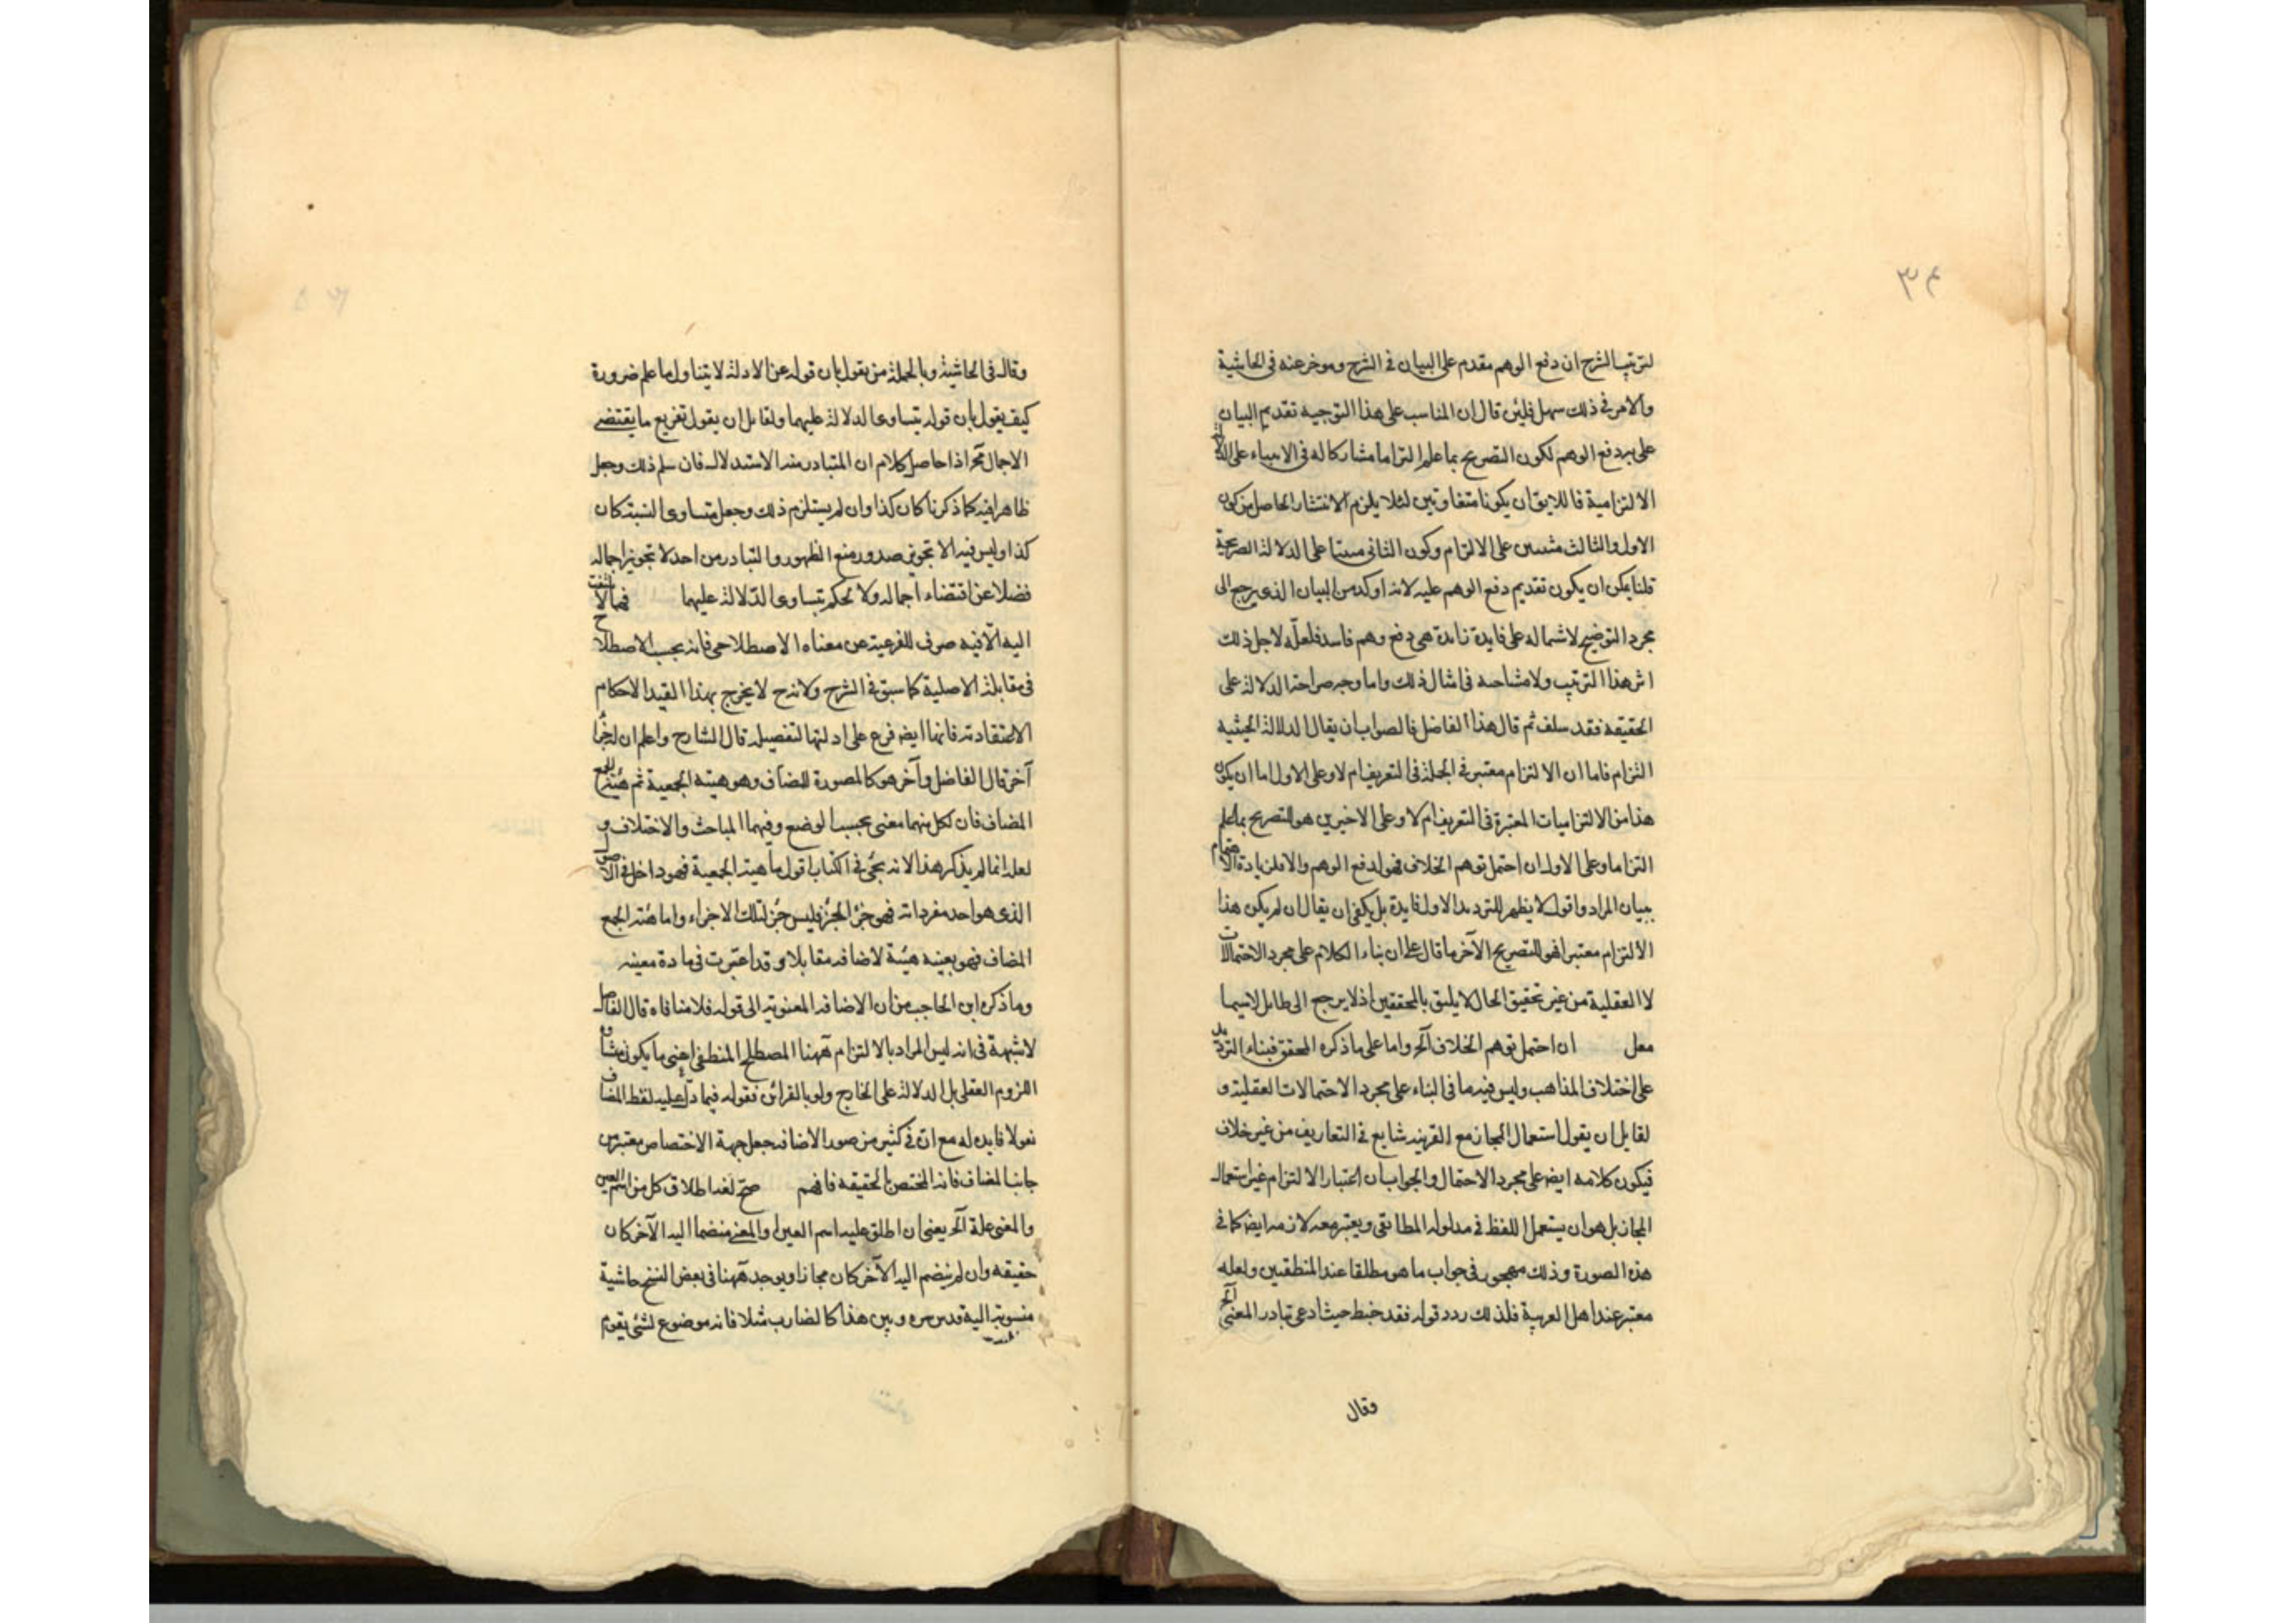 ٣٤
لترتيب الشرح ان دفع الوهم مقدم على البيان في الشرح وموخر عنه في الحاشية
والامر في ذلك سهل فلئن قال ان المناسب على هذا التوجيه تقديم البيان
على دفع الوهم لكون التصريح بما علم التزاما مشاركا له في الابتناء على الدلالة
الالتزامية فاللايق ان يكونا متقاربين لئلا يلزم الانتشار الحاصل من كون
الاول والثالث مبنيين على الالتزام وكون الثاني مبنيا على الدلالة الصريحة
قلنا يمكن ان يكون تقديم دفع الوهم عليه لانه اوكد من البيان الذي يرجع الى
مجرد التوضيح لاشماله على فايدة زايدة هي دفع وهم فاسد فلعله لاجل ذلك
اثر هذا الترتيب ولا مشاحة في امثال ذلك واما وجه صراحة الدلالة على
الحقيقة فقد سلف ثم قال هذا الفاضل فالصواب ان يقال الدلالة الحيثية
التزام فاما ان الالتزام معتبر في الجملة في التعريف ام لا وعلى الاول اما ان يكون
هذا من الالتزاميات المعتبرة في التعريف ام لا وعلى الاخيرين هو التصريح بما علم
التزاما وعلى الاول ان احتمل توهم الخلاف فهو لدفع الوهم والا فلزيادة الاهتمام
ببيان المراد واقول لا يظهر للترديد الاول فايدة بل يكفي ان يقال ان لم يكن هذا
الالتزام معتبرا فهو للتصريح الآخر ما قال على ان بناء الكلام على مجرد الاحتمالات
لا العقلية من غير تحقيق الحال لا يليق بالمحققين اذ لا يرجع الى طايل لاسيما
ان احتمل توهم الخلاف آلخ واما على ما ذكره المحقق فبناء الترديد
على اختلاف المذاهب وليس فيه ما في البناء على مجرد الاحتمالات العقلية و
لقايل ان يقول استعمال المجاز مع القرينة شايع في التعاريف من غير خلاف
فيكون كلامه ايضا على مجرد الاحتمال والجواب ان اعتبار الالتزام غير استعمال
المجاز بل هو ان يستعمل اللفظ في مدلوله المطابقي ويعتبر معه لازمه ايضا كما في
هذه الصورة وذلك مهجور في جواب ما هو مطلقا عند المنطقيين ولعله
معتبر عند اهل العربية فلذلك ردد قوله فقد خبط حيث ادعى تبادر المعنى آلخ
وقال
وقال في الحاشية وبالجملة من يقول بان قوله عن الادلة لا يتناول ما علم ضرورة
كيف يقول بان قوله يتساوى الدلالة عليهما ولقايل ان يقول تفريع ما يقتضي
الاجمال آلخ اذا حاصل كلامه ان المتبادر منه الاستدلال فان سلم ذلك وجعل
ظاهرا فيه كما ذكرنا كان كذا وان لم يستلزم ذلك وجعل متساوى النسبة كان
كذا وليس فيه الا تجويز صدور منع الظهور والتبادر من احد لا تجويز اجماله
فضلا عن اقتضاء اجماله ولا تحكم بتساوى الدلالة عليهما فمالا التفت
اليه الا فيه صرف للفرعية عن معناه الاصطلاحي فانه بحسب الاصطلاح
في مقابلة الاصلية كما سبق في الشرح ولانه ح لا يخرج بهذا القيد الاحكام
الاعتقادية فانها ايضا فرع على ادلتها التفصيلة قال الشارح واعلم ان له جزءا
آخر قال الفاضل وآخر هو كالصورة للمضاف وهو هيئة الجمعية ثم هيئة الجمع
المضاف فان لكل منهما معنى بحسب الوضع وفيهما المباحث والاختلاف و
لعله انما لم يذكر هذا لانه يجئ في الكتاب اقول اما هيئة الجمعية فهو داخل في الاصول
الذي هو احد مفرداته فهو جزء الجزء فليس جزء لتلك الاجزاء واما هيئة الجمع
المضاف فهو بعينه هيئة الاضافة مقابلا وقد اعتبرت في مادة معينة
وما ذكره ابن الحاجب من ان الاضافة المعنوية الى قوله فلا منافاة قال الفاضل
لا شبهة في انه ليس المراد بالالتزام ههنا المصطلح المنطقي اعني ما يكون
اللزوم العقلي بل الدلالة على الخارج ولو بالقرائن فقوله فيما دل عليه لفظ المضاف
نعم لا فايدة له مع ان في كثير من صور الاضافة جعل جهة الاختصاص معتبر من
جانب المضاف فانه المختص بالحقيقة فافهم صح لغة اطلاق كل من اسم العين
والمعنى علة آلخ يعنى ان اطلق عليه اسم العين والمعنى منضما اليه الآخر كان
حقيقة وان لم ينضم اليه الآخر كان مجازا ويوجد ههنا في بعض النسخ حاشية
منسوبة اليه قدس سره وبين هذا كالضارب مثلا فانه موضوع لشئ يقوم